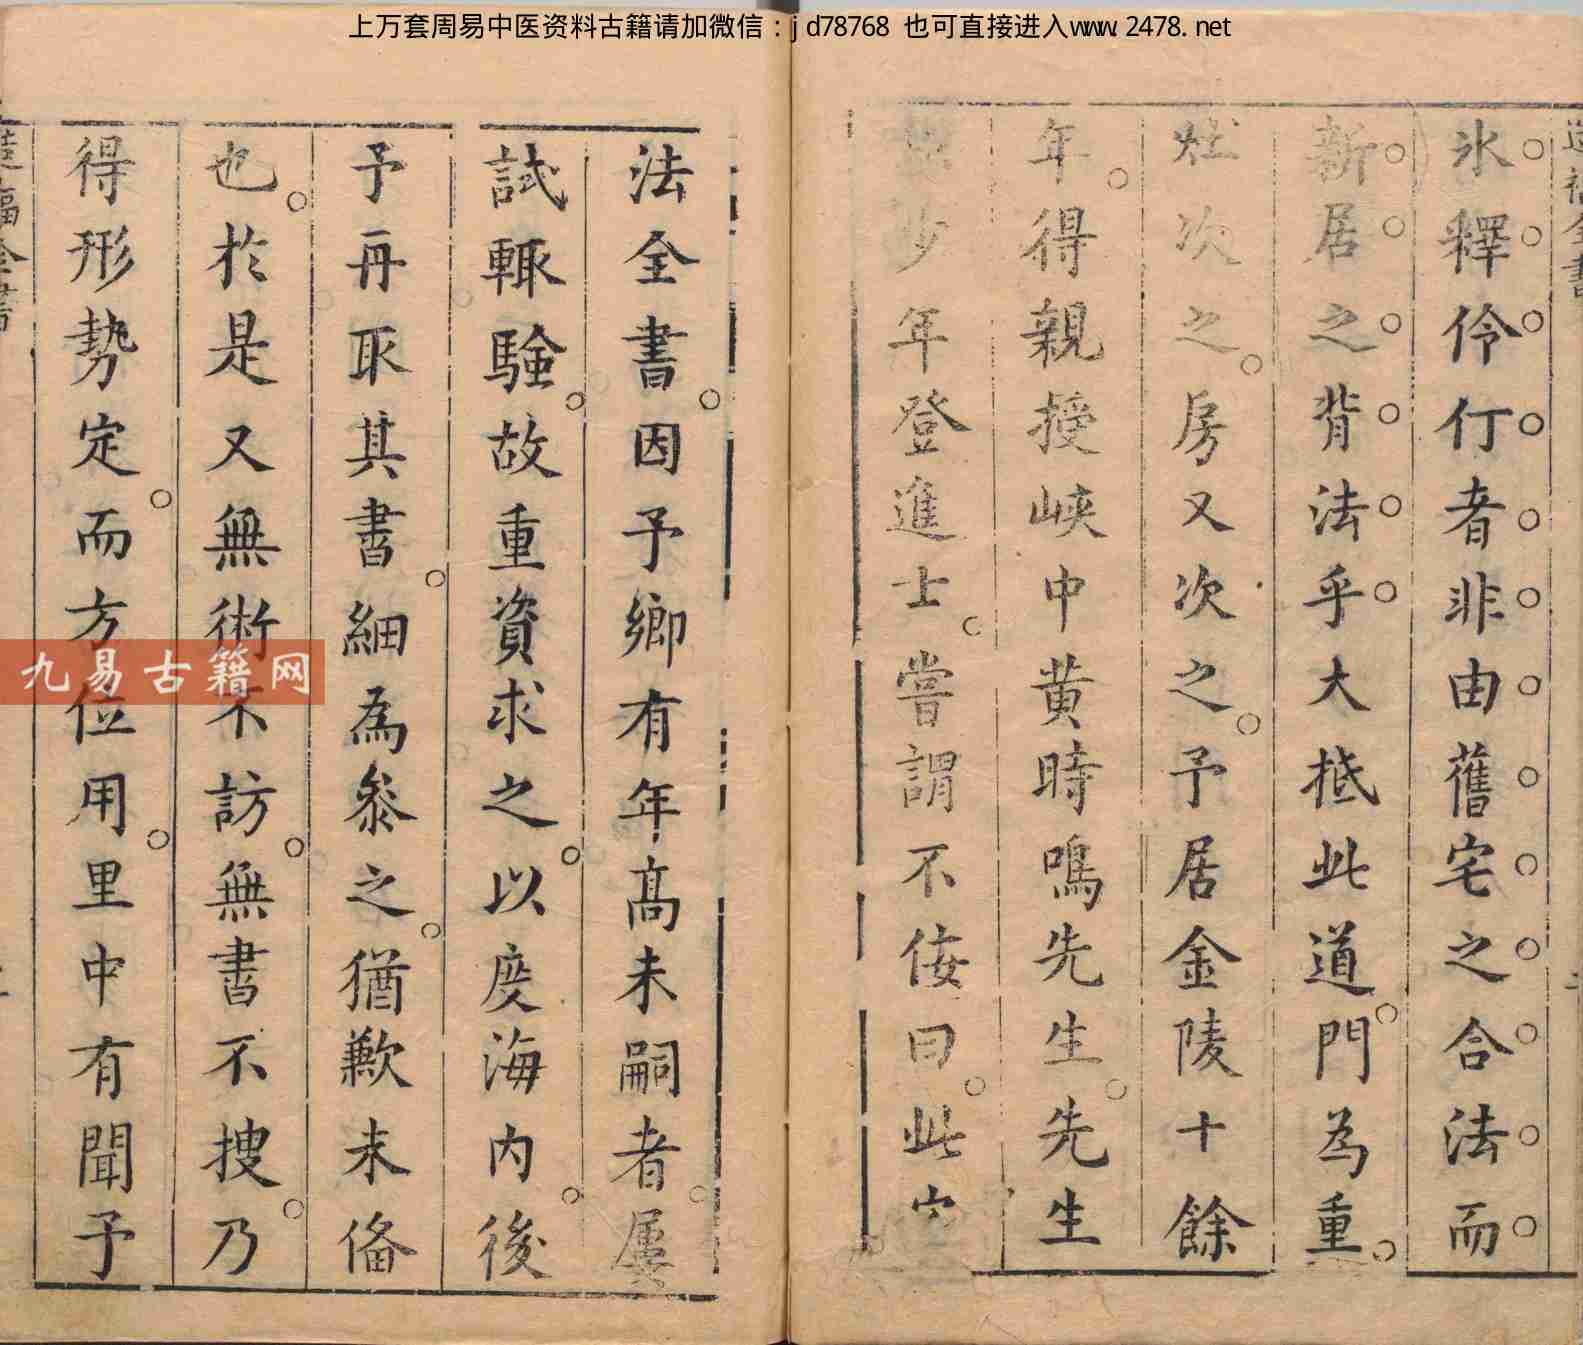 上万套周易中医资料古籍请加微信：jd78768 也可直接进入www.2478.net
氷釋伶仃者非由舊宅之合法而
新居之背法乎大抵此道門為重
灶次之房又次之予居金陵十餘
年得親授峽中黄時鳴先生先生
少年登進士嘗謂不佞曰此穴
法全書因予鄉有年髙未嗣者屢
試輙驗故重資求之以度海内後
予再取其書細為叅之猶歉未俻
也於是又無術不訪無書不搜乃
得形勢定而方位用里中有聞予
九易古籍网